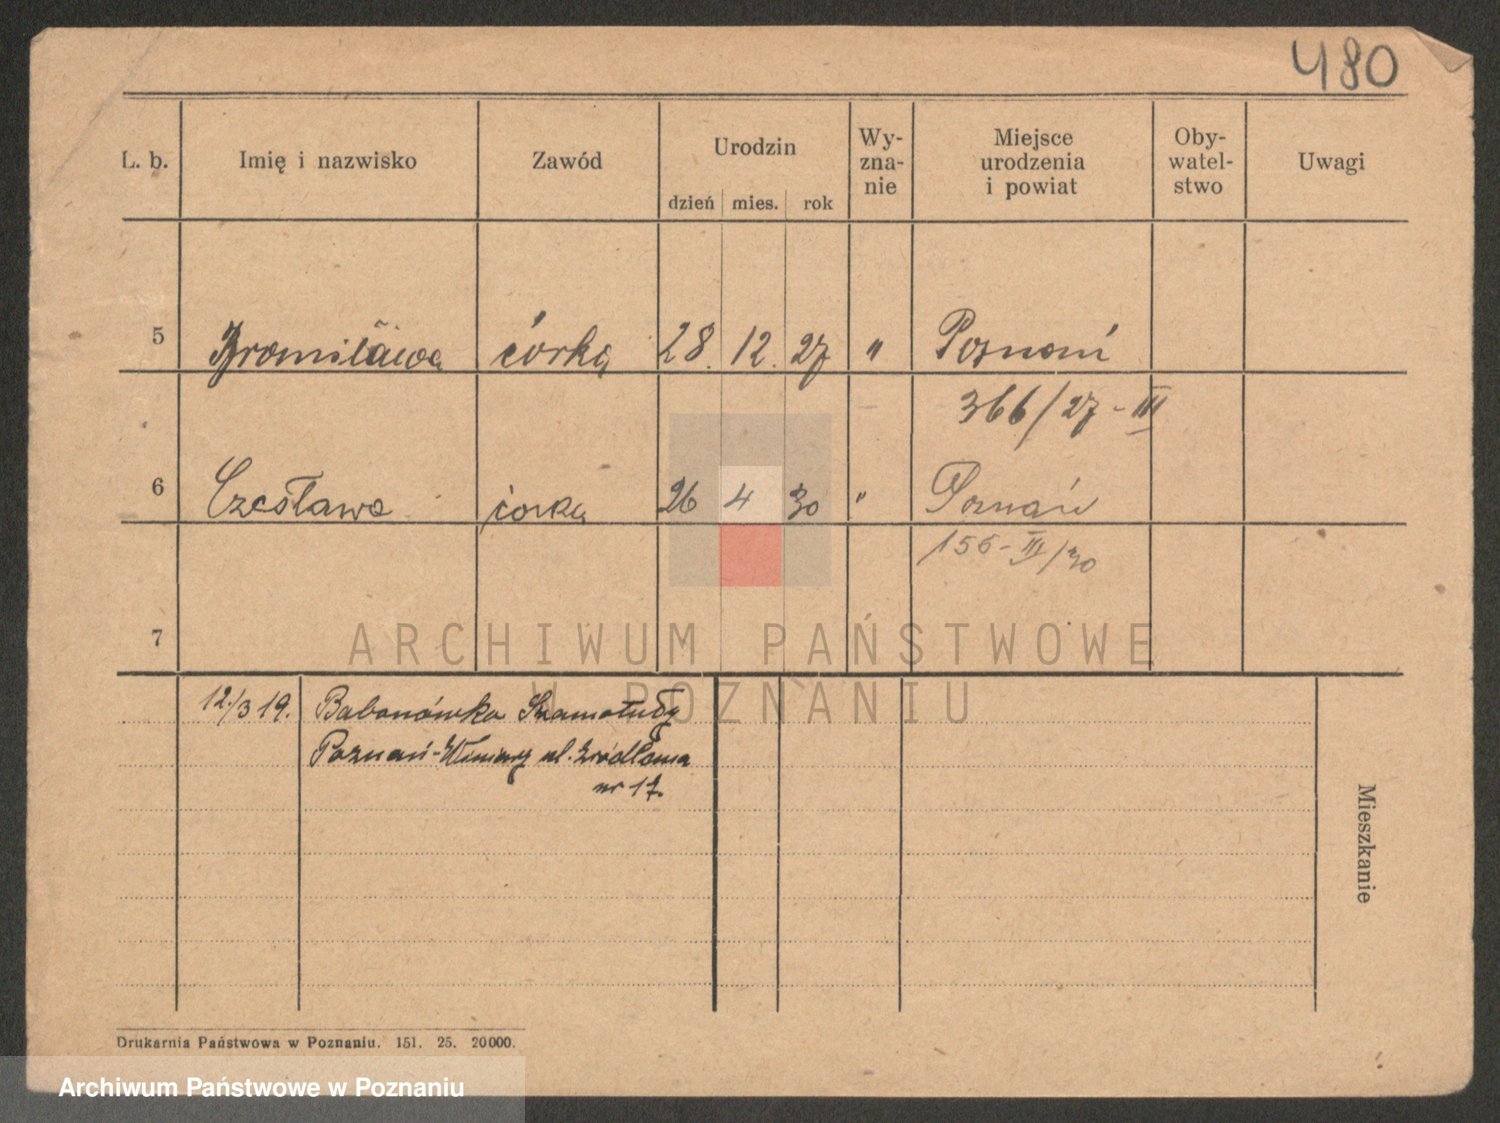 480
L. b. Imię i nazwisko Zawód Urodzin Wy-zna-nie Miejsce urodzenia i powiat Oby-watel-stwo Uwagi
dzień mies. rok
5 Bronisława córka 28. 12. 27 " Poznań
366/27-III
6 Czesława córka 26 4 30 " Poznań
156-III/30
7
ARCHIWUM PAŃSTWOWE
W POZNANIU
12./3 19. Babonówka Szamotuły
Poznań-Winiary ul. Źródlana
nr 17.
Mieszkanie
Drukarnia Państwowa w Poznaniu. 151. 25. 20000.
Archiwum Państwowe w Poznaniu